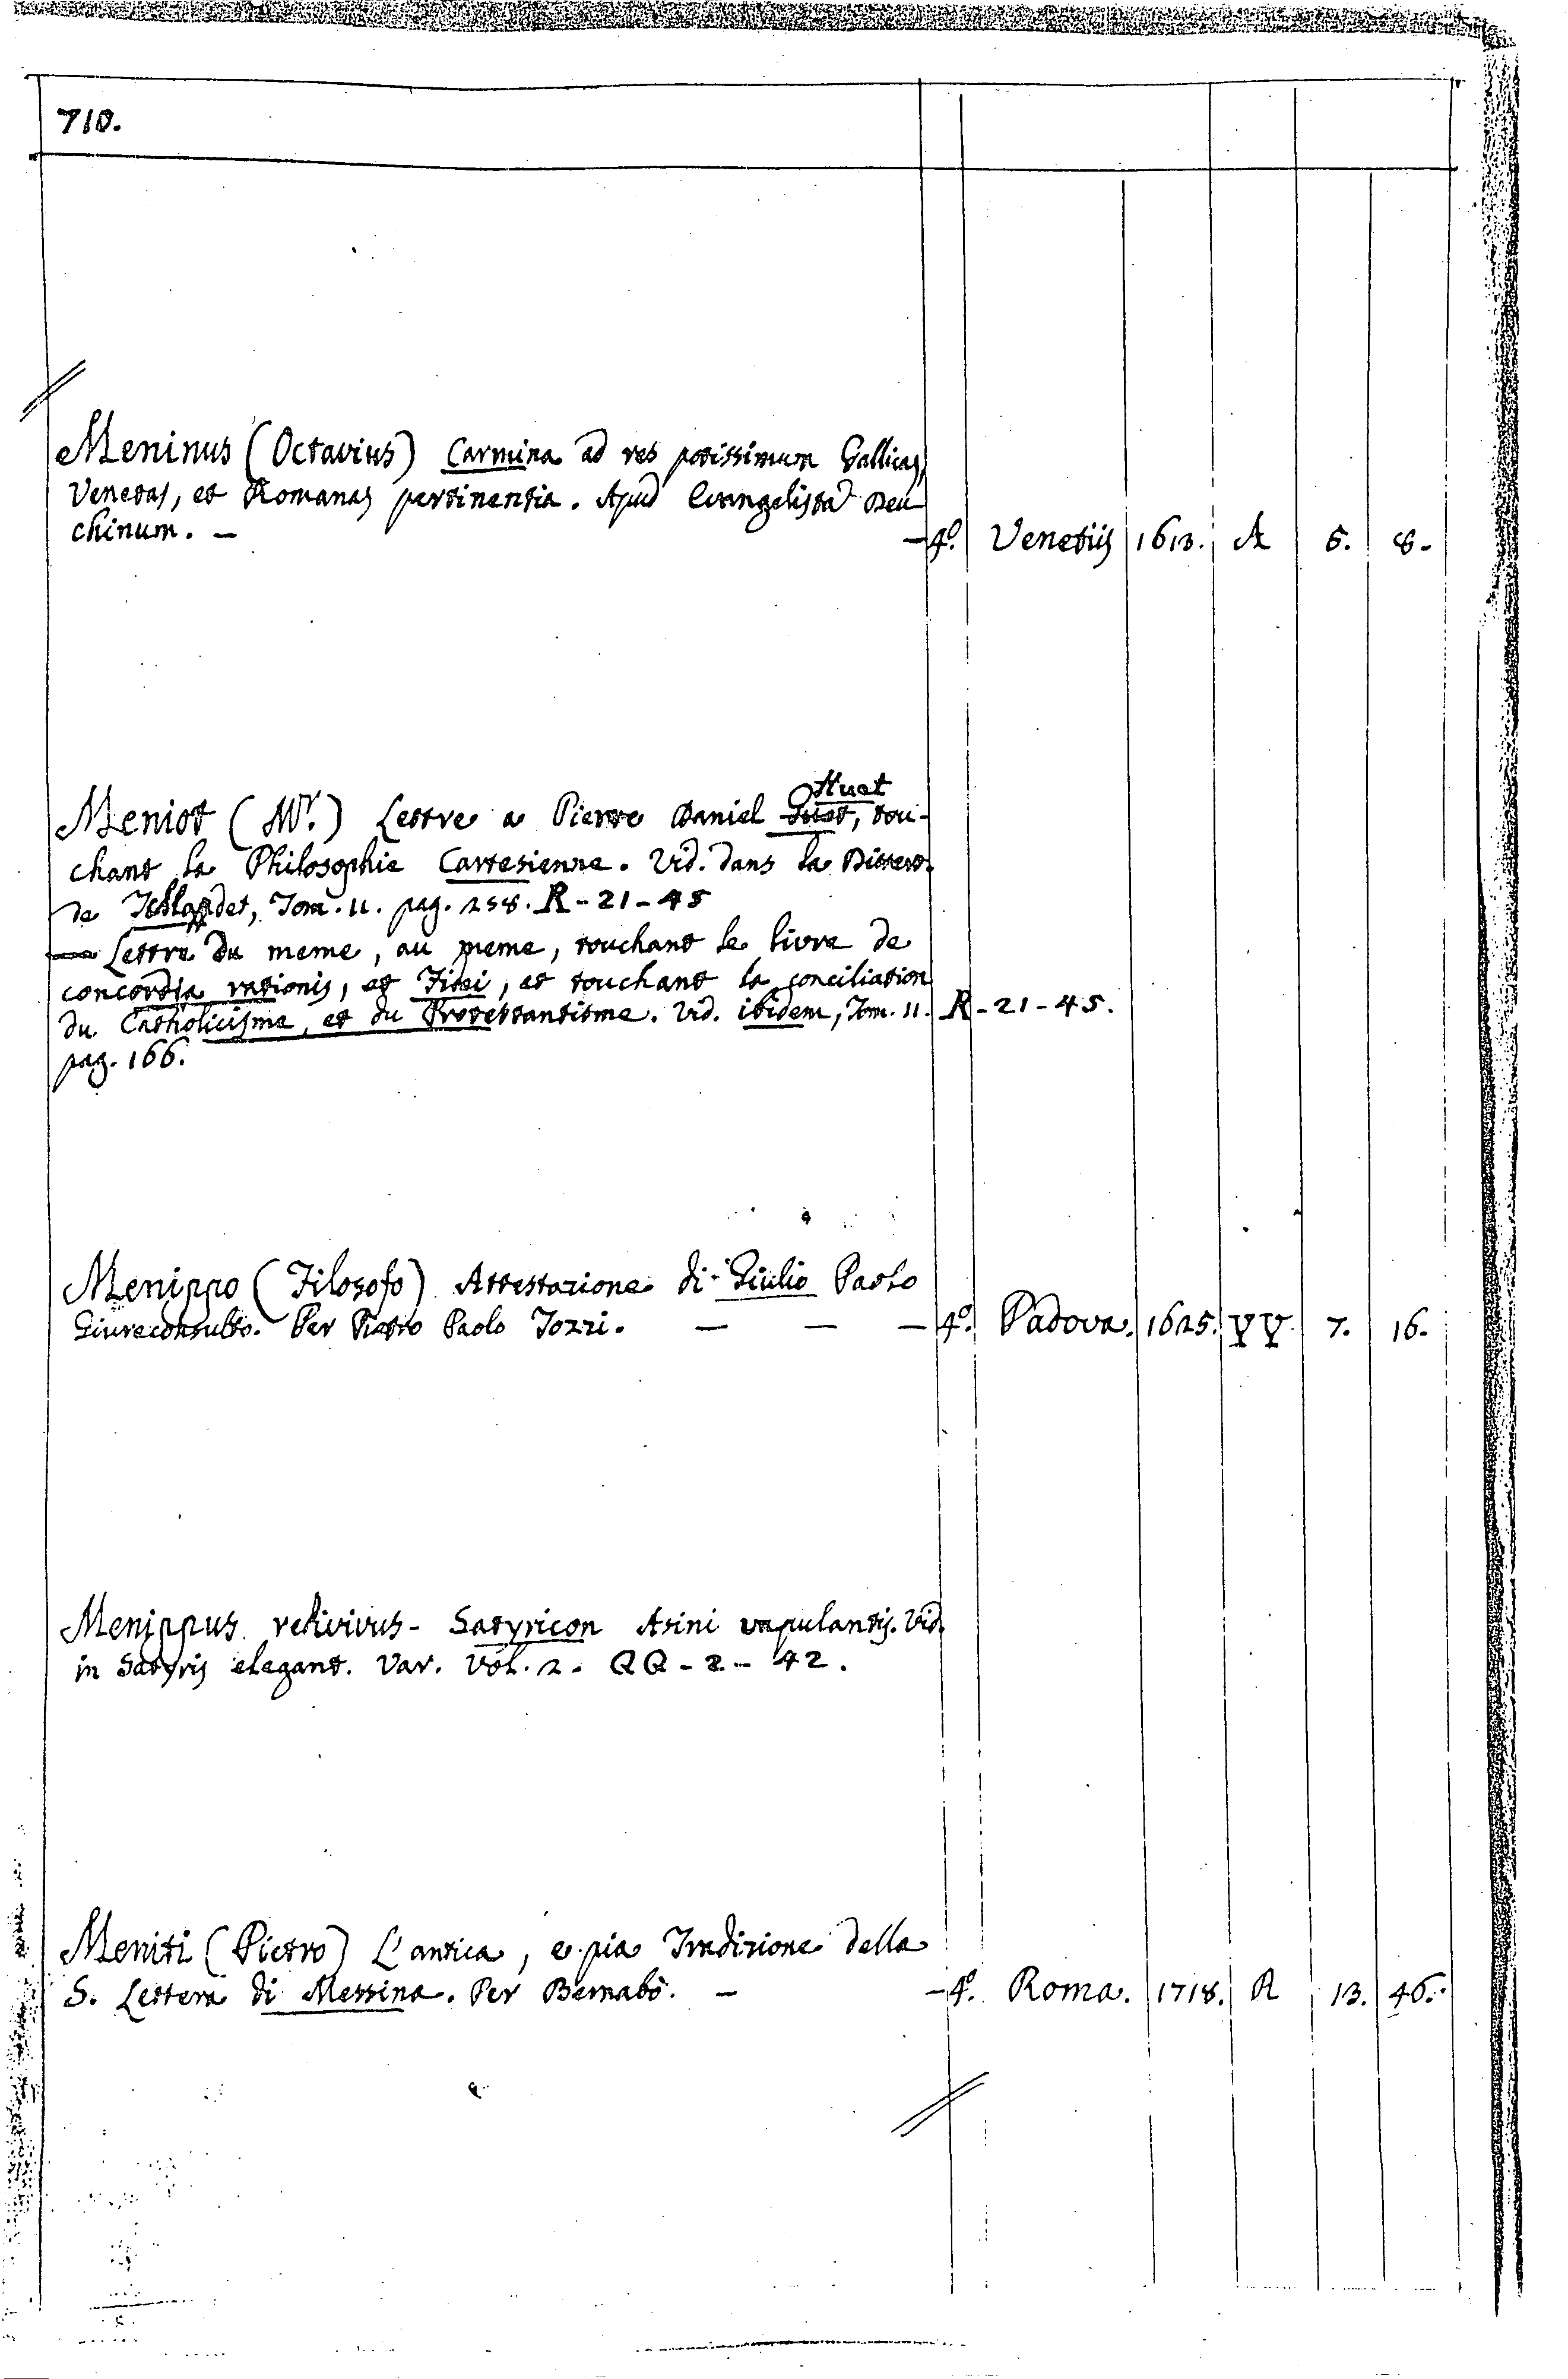 710.
Meninus (Octavius) Carmina ad res potissimum Gallicas,
Venetas, et Romanas pertinentia. Apud Evangelista Deu-
chinum. — — 4º. Venetiis 1613. A 5. 8.
Huet
Meniot (Mr.) Lettre a Pierre Daniel, tou-
chant la Philosophie Cartesienne. Vid. dans la Dissert.
de Tilladet, Tom. 11. pag. 158. R-21-45
— Lettre du meme, au meme, touchant le livre de
concordia rationis, et Fidei, et touchant la conciliation
du Catholicisme, et du Protestantisme. Vid. ibidem, Tom. 11. R-21-45.
pag. 166.
Menippo (Filosofo) Attestazione di Giulio Paolo
Giureconsulto. Per Pietro Paolo Tozzi. — — — 4º. Padova. 1625. YY 7. 16.
Menippus redivivus - Satyricon Asini vapulantis. Vid.
in Satyris elegant. Var. Vol. 2. QQ-2-42.
Meniti (Pietro) L'antica, e pia Tradizione della
S. Lettera di Messina. Per Bernabò. — — 4º. Roma. 1718. R 13. 46.